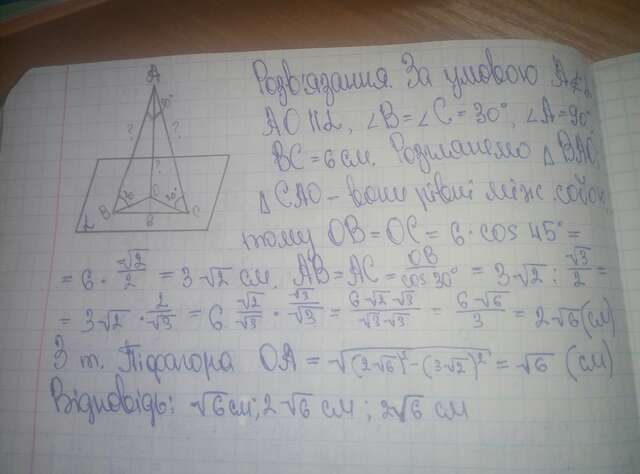 A
90°
? ?
?
30° O 30°
B C
6
α
Розв'язання. За умовою A∉α,
AO∥α, ∠B=∠C=30°, ∠A=90°
BC=6см. Розглянемо △BAO,
△CAO – вони рівні між собою,
тому OB=OC=6·cos 45°=
=6·√2/2=3√2 см. AB=AC=OB/cos30°=3√2:√3/2=
=3√2·2/√3=6√2/√3·√3/√3=6√2·√3/√3·√3=6√6/3=2√6(см)
З т. Піфагора OA=√((2√6)²-(3√2)²)=√6 (см)
Відповідь: √6см; 2√6 см; 2√6 см